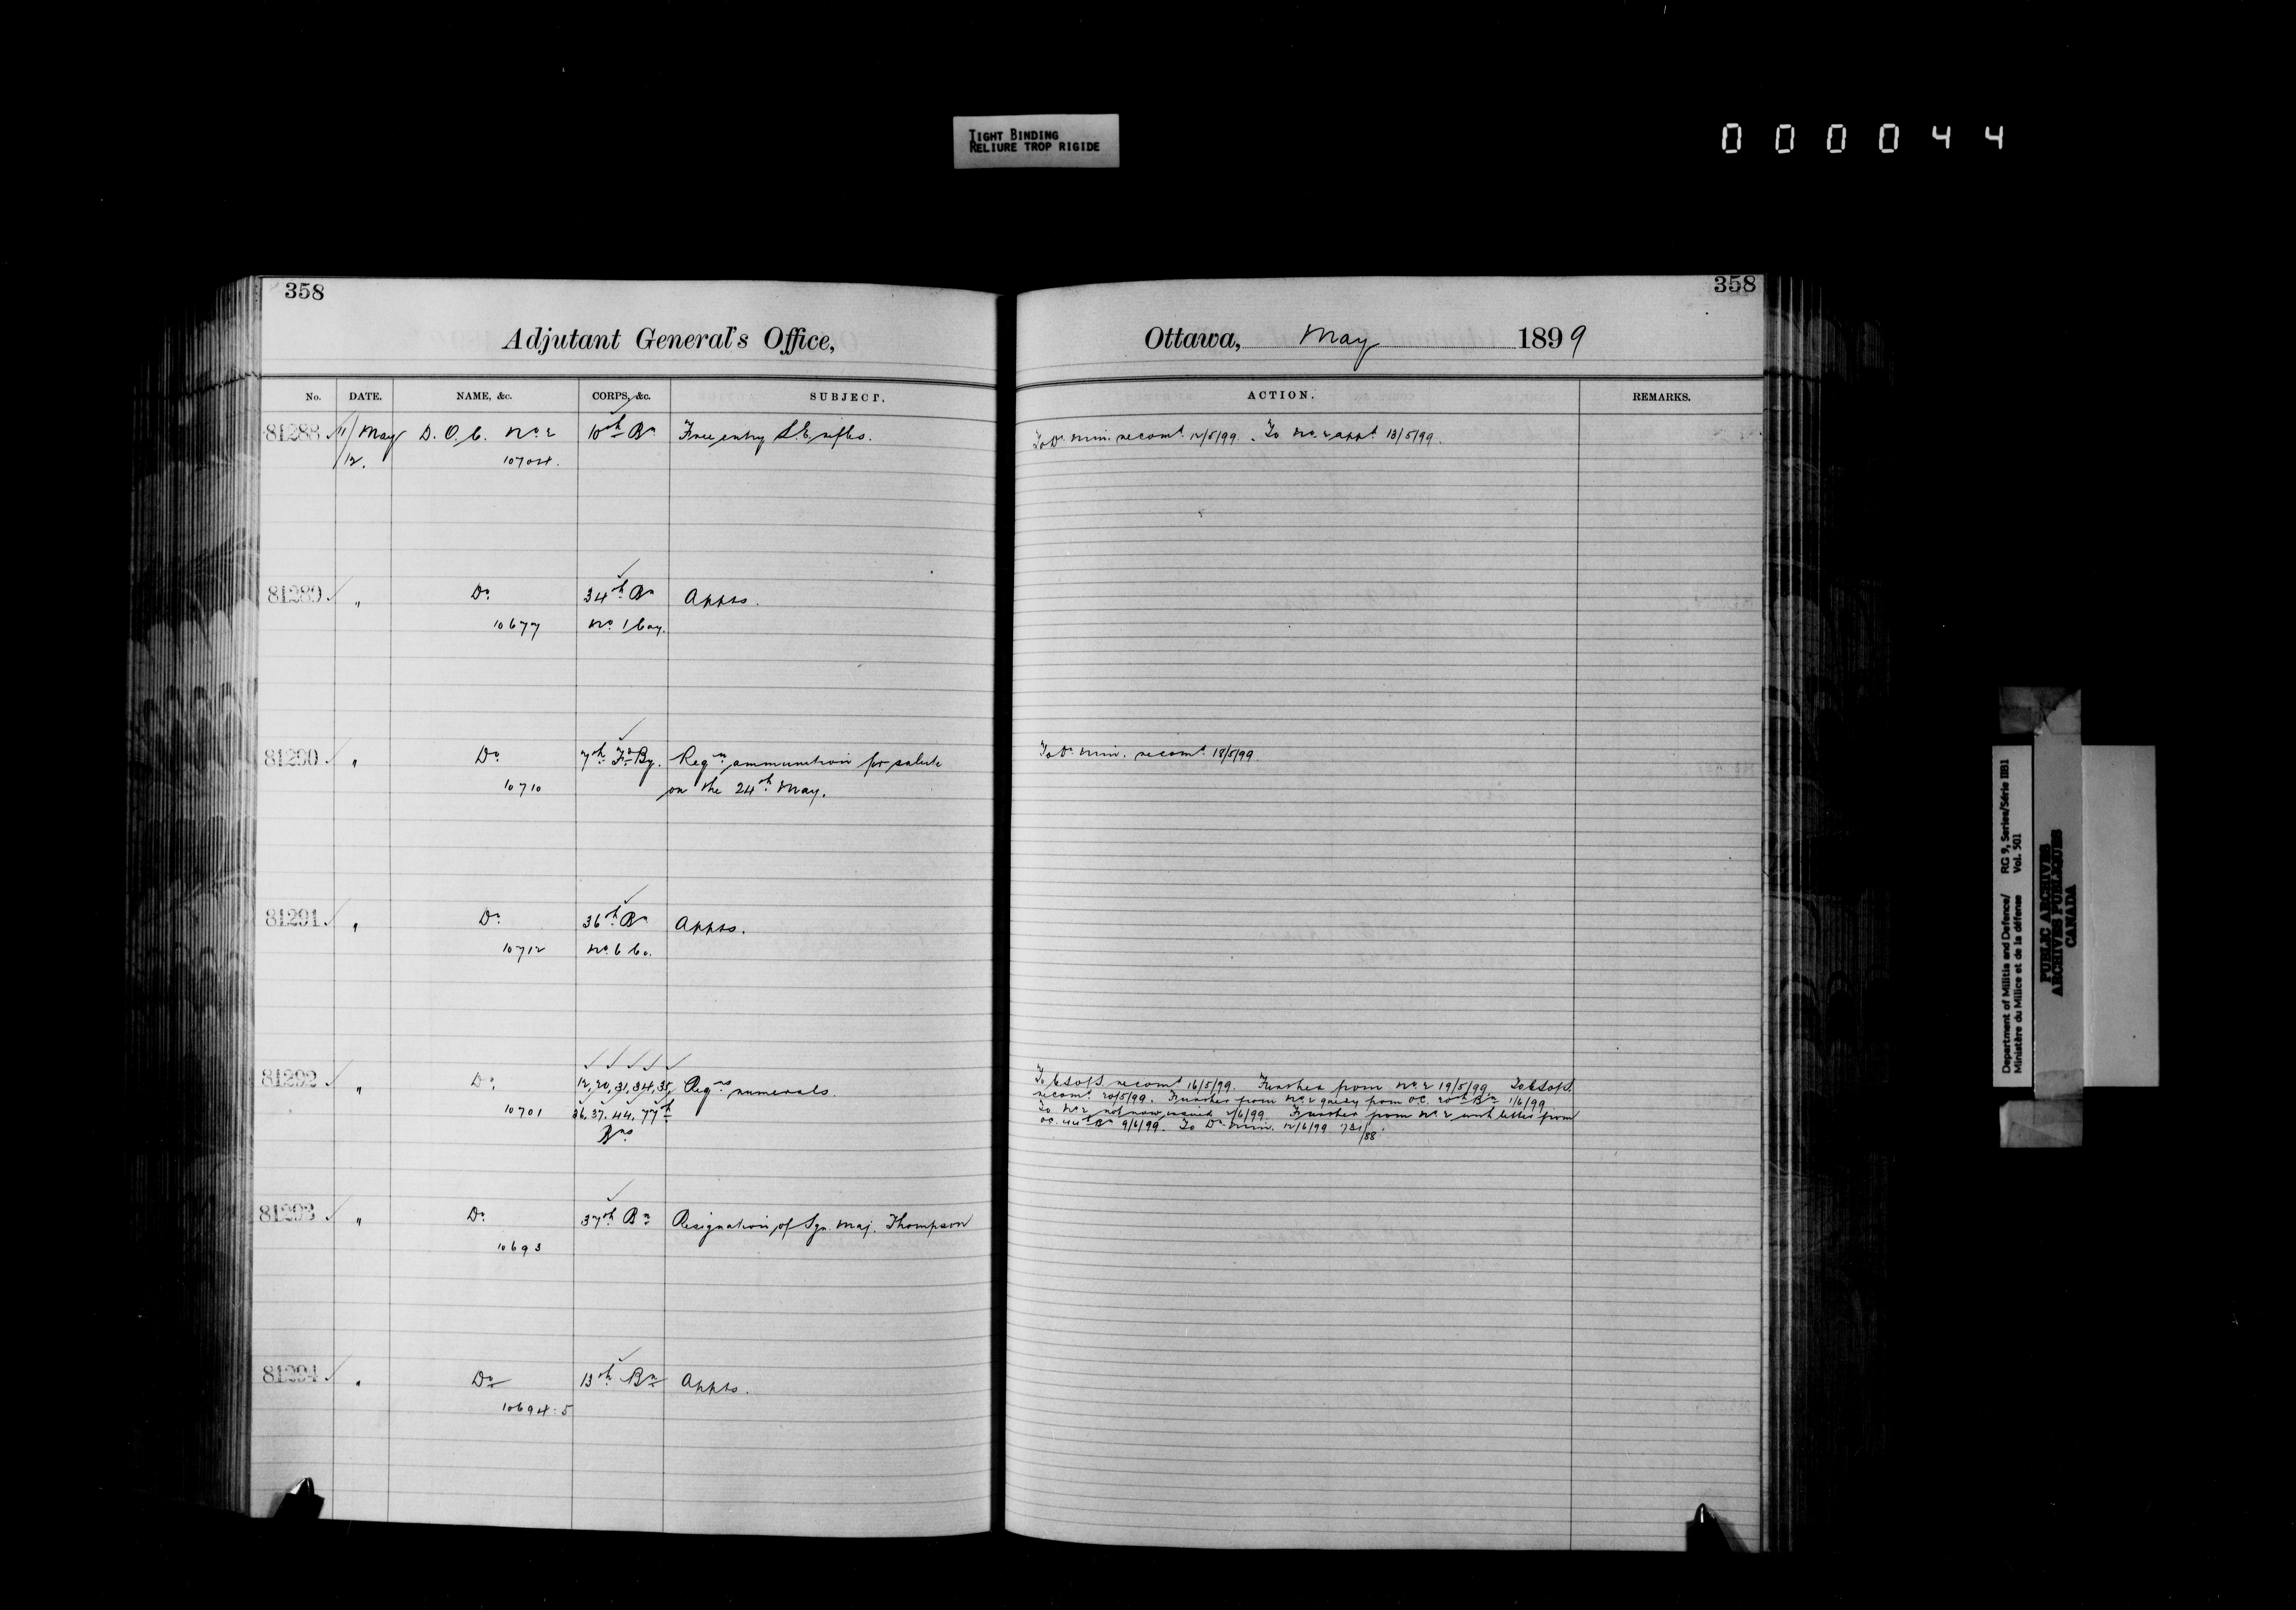 TIGHT BINDING
RELIURE TROP RIGIDE
000044
358
358
Adjutant General's Office,
Ottawa, May 1899
No. DATE. NAME, &c. CORPS, &c. SUBJECT. ACTION. REMARKS.
81288 11/May D. O. C. No. 2 10th Bn Free entry L.E. rifles. To Dr. Min. recomd. 12/5/99. To No. 2 appd. 13/5/99.
/12. 10704.
81289 " Do. 34th Bn Appts.
10677 No. 1 Coy.
81290 " Do. 7th Fd. By. Reqn. ammunition for salute To Dr. Min. recomd. 18/5/99.
10710 on the 24th May.
81291 " Do. 36th Bn Appts.
10712 No. 6 Co.
81292 " Do. 12, 20, 31, 34, 35, Reqns numerals. To C S of S recomd. 16/5/99. Further from No. 2 19/5/99. To C S of S.
10701 36, 37, 44, 77th recomd. 20/5/99. Further from No. 2 query from O.C. 20th Bn 1/6/99
Bns To No. 2 not now issued 2/6/99. Further from No. 2 with letter from
O.C. 44th Bn 9/6/99. To Dr. Min. 12/6/99
81293 " Do. 37th Bn Resignation of Sgn. Maj. Thompson
10693
81294 " Do. 13th Bn Appts.
10694-5
Department of Militia and Defence/ RG 9, Series/Série IIB1
Ministère du Milice et de la défense Vol. 501
PUBLIC ARCHIVES
ARCHIVES PUBLIQUES
CANADA